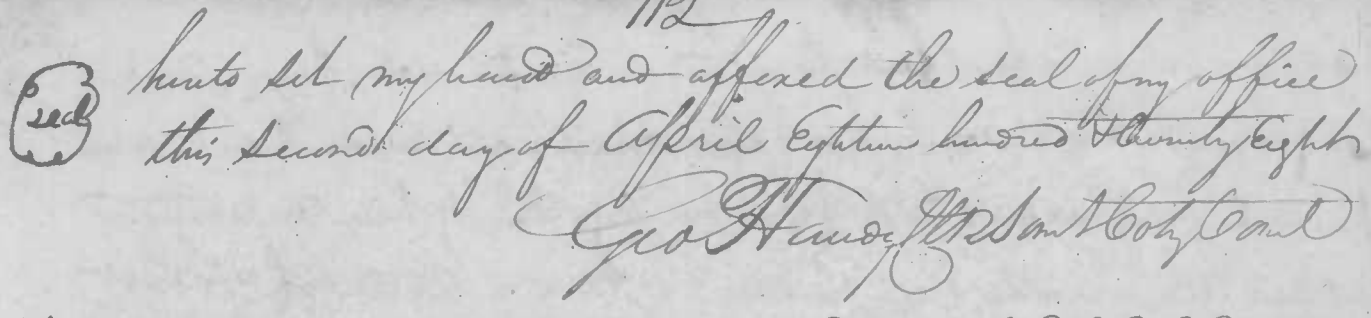 112
hunto set my hand and affixed the seal of my office
seal
this second day of April Eighteen hundred & twenty Eight
Geo Handy Clk Somt Coty Court